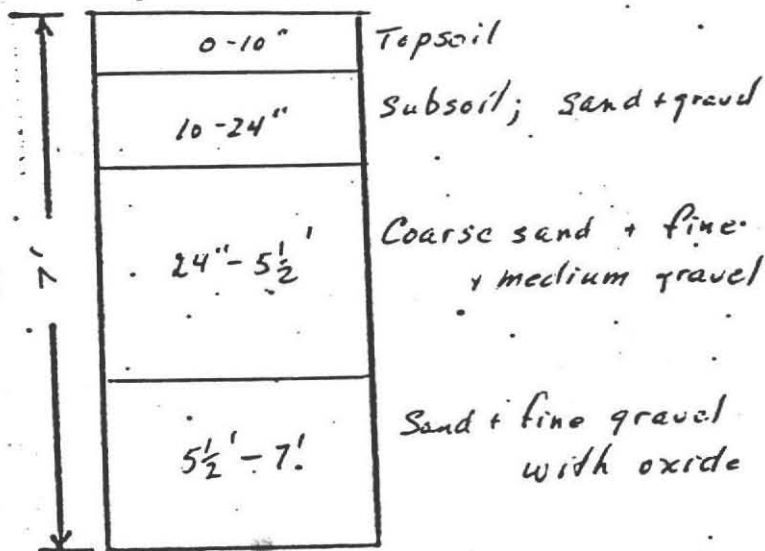 0-10" Topsoil
10-24" Subsoil; Sand + gravel
24"-5½' Coarse sand + fine
+ medium gravel
7'
5½'-7' Sand + fine gravel
with oxide